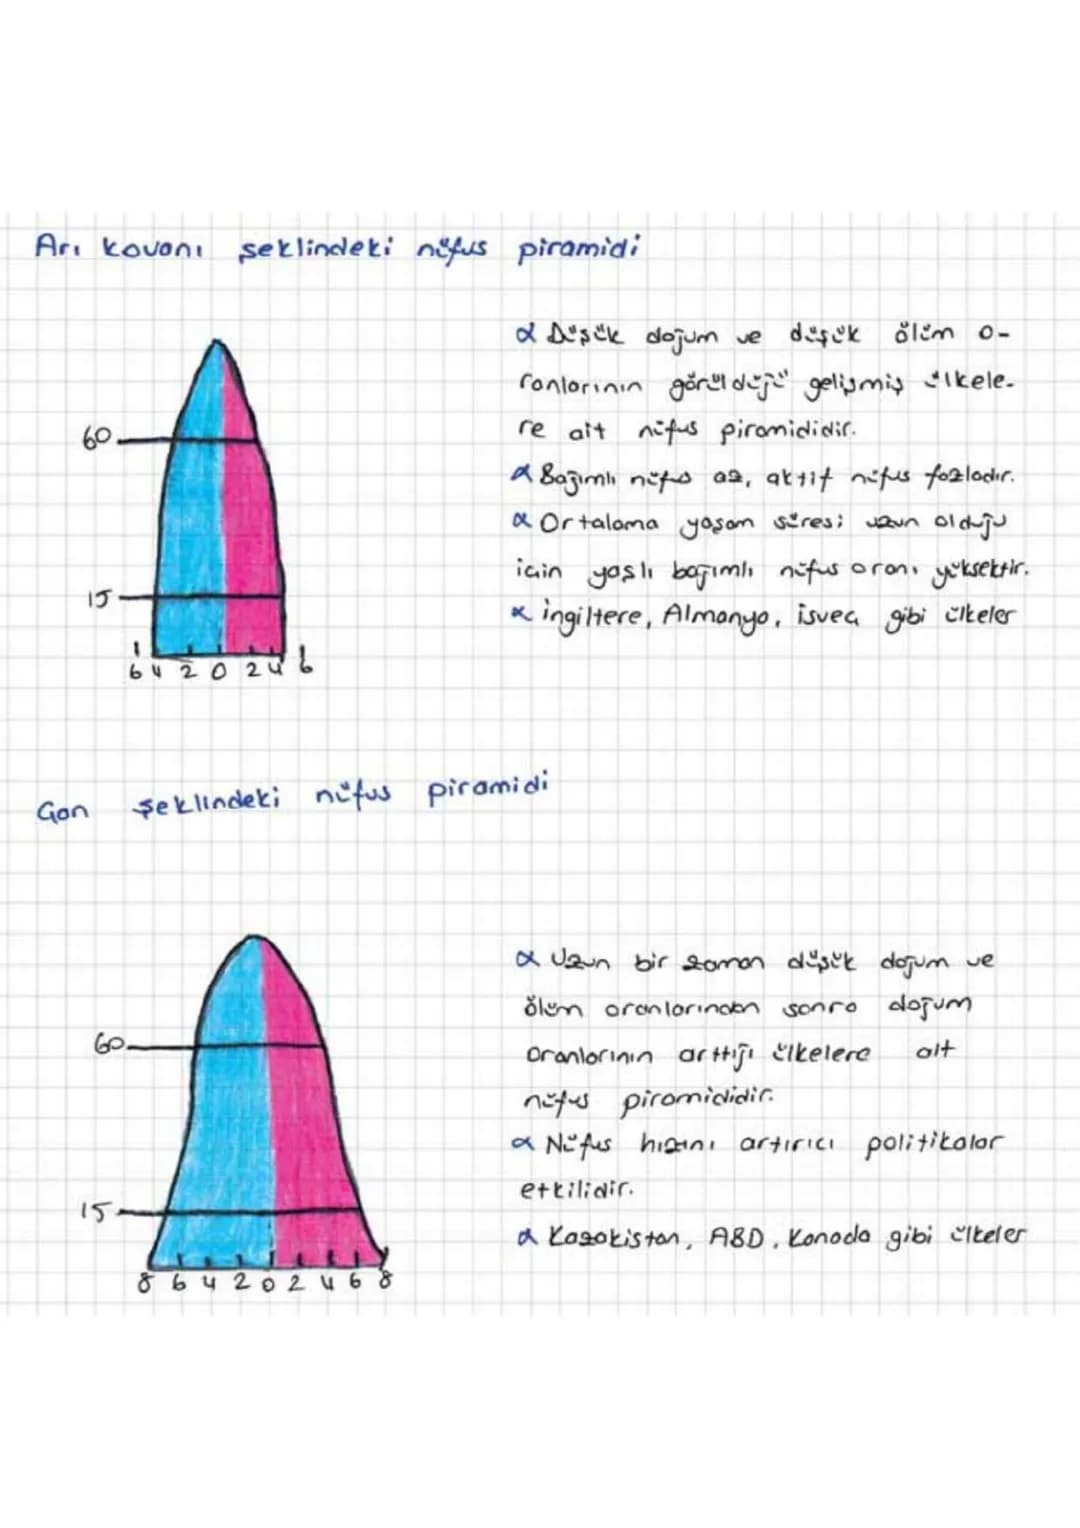 Arı kovanı şeklindeki nüfus piramidi
α Düşük doğum ve düşük ölüm o-
ranlarının görüldüğü gelişmiş ülkele-
re ait nüfus piramididir.
α Bağımlı nüfus az, aktif nüfus fazladır.
α Ortalama yaşam süresi uzun olduğu
için yaşlı bağımlı nüfus oranı yüksektir.
α ingiltere, Almanya, isveç gibi ülkeler
60
15
6 4 2 0 2 4 6
Çan şeklindeki nüfus piramidi
α Uzun bir zaman düşük doğum ve
ölüm oranlarından sonra doğum
oranlarının arttığı ülkelere ait
nüfus piramididir.
α Nüfus hızını artırıcı politikalar
etkilidir.
α Kazakistan, ABD, Kanada gibi ülkeler
60
15
8 6 4 2 0 2 4 6 8